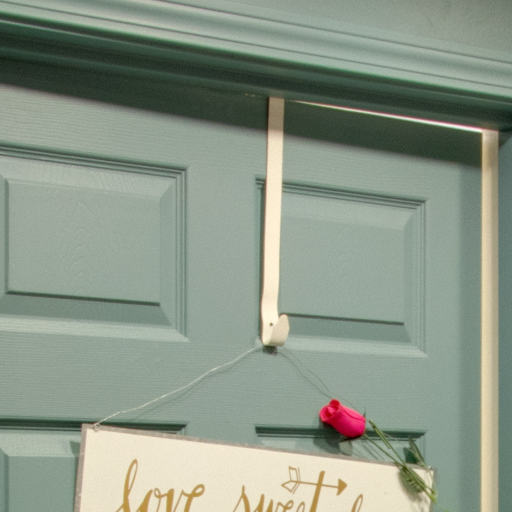 love sweet